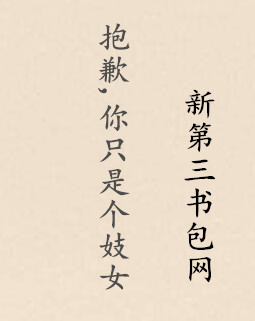 抱歉,你只是个妓女
新第三书包网